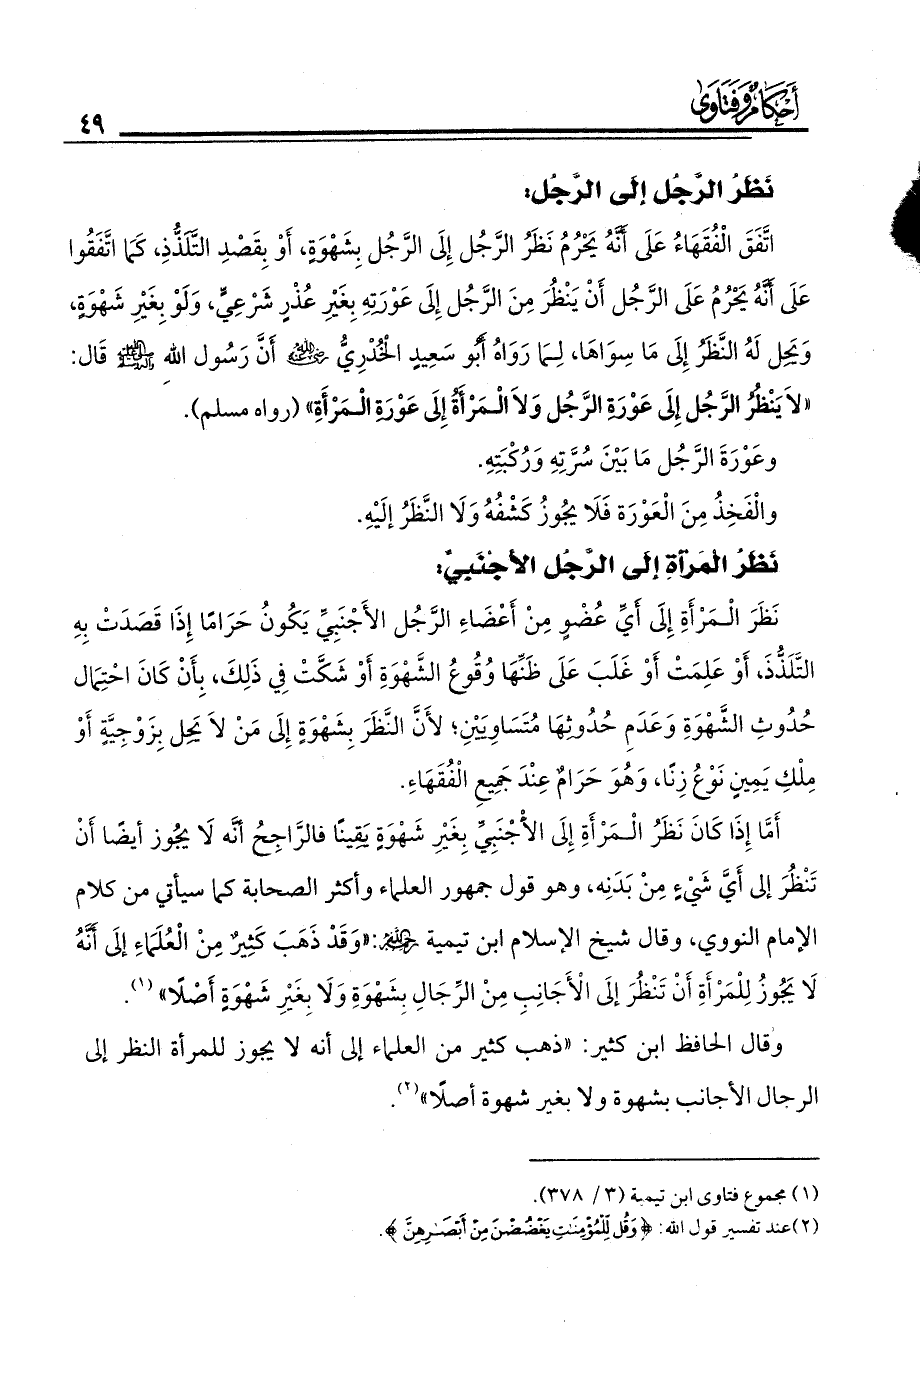 أحكام وفتاوى
٤٩
نَظَرُ الرَّجُل إِلَى الرَّجُل:
اتَّفَقَ الْفُقَهَاءُ عَلَى أَنَّهُ يَحْرُمُ نَظَرُ الرَّجُل إِلَى الرَّجُل بِشَهْوَةٍ، أَوْ بِقَصْدِ التَّلَذُّذِ، كَمَا اتَّفَقُوا
عَلَى أَنَّهُ يَحْرُمُ عَلَى الرَّجُل أَنْ يَنْظُرَ مِنَ الرَّجُل إِلَى عَوْرَتِهِ بِغَيْرِ عُذْرٍ شَرْعِيٍّ، وَلَوْ بِغَيْرِ شَهْوَةٍ،
وَيَحِل لَهُ النَّظَرُ إِلَى مَا سِوَاهَا، لِمَا رَوَاهُ أَبُو سَعِيدٍ الْخُدْرِيُّ رضي الله عنه أَنَّ رَسُول اللهِ ﷺ قَال:
«لاَ يَنْظُرُ الرَّجُل إِلَى عَوْرَةِ الرَّجُل وَلاَ الْمَرْأَةُ إِلَى عَوْرَةِ الْمَرْأَةِ» (رواه مسلم).
وعَوْرَةَ الرَّجُل مَا بَيْنَ سُرَّتِهِ وَرُكْبَتِهِ.
والْفَخِذُ مِنَ الْعَوْرَة فَلَا يجُوزُ كَشْفُهُ وَلَا النَّظَرُ إِلَيْهِ.
نَظَرُ الْمَرْأَةِ إِلَى الرَّجُل الأَجْنَبِيِّ:
نَظَرَ الْمَرْأَةِ إِلَى أَيِّ عُضْوٍ مِنْ أَعْضَاءِ الرَّجُل الأَجْنَبِيِّ يَكُونُ حَرَامًا إِذَا قَصَدَتْ بِهِ
التَّلَذُّذَ، أَوْ عَلِمَتْ أَوْ غَلَبَ عَلَى ظَنِّهَا وُقُوعُ الشَّهْوَةِ أَوْ شَكَّتْ فِي ذَلِكَ، بِأَنْ كَانَ احْتِمَال
حُدُوثِ الشَّهْوَةِ وَعَدَمِ حُدُوثِهَا مُتَسَاوِيَيْنِ؛ لأَنَّ النَّظَرَ بِشَهْوَةٍ إِلَى مَنْ لاَ يَحِل بِزَوْجِيَّةٍ أَوْ
مِلْكِ يَمِينٍ نَوْعُ زِنًا، وَهُوَ حَرَامٌ عِنْدَ جَمِيعِ الْفُقَهَاءِ.
أَمَّا إِذَا كَانَ نَظَرُ الْمَرْأَةِ إِلَى الأَجْنَبِيِّ بِغَيْرِ شَهْوَةٍ يَقِينًا فالرَّاجِحُ أنَّه لَا يجُوز أيضًا أنْ
تَنْظُرَ إلى أَيَّ شَيْءٍ مِنْ بَدَنِه، وهو قول جمهور العلماء وأكثر الصحابة كما سيأتي من كلام
الإمام النووي، وقال شيخ الإسلام ابن تيمية رحمه الله: «وَقَدْ ذَهَبَ كَثِيرٌ مِنْ الْعُلَمَاءِ إلَى أَنَّهُ
لَا يَجُوزُ لِلْمَرْأَةِ أَنْ تَنْظُرَ إلَى الْأَجَانِبِ مِنْ الرِّجَالِ بِشَهْوَةِ وَلَا بِغَيْرِ شَهْوَةٍ أَصْلًا» (١).
وقال الحافظ ابن كثير: «ذهب كثير من العلماء إلى أنه لا يجوز للمرأة النظر إلى
الرجال الأجانب بشهوة ولا بغير شهوة أصلًا»(٢).
(١) مجموع فتاوى ابن تيمية (٣/ ٣٧٨).
(٢)عند تفسير قول الله: ﴿وَقُل لِّلْمُؤْمِنَٰتِ يَغْضُضْنَ مِنْ أَبْصَٰرِهِنَّ﴾.